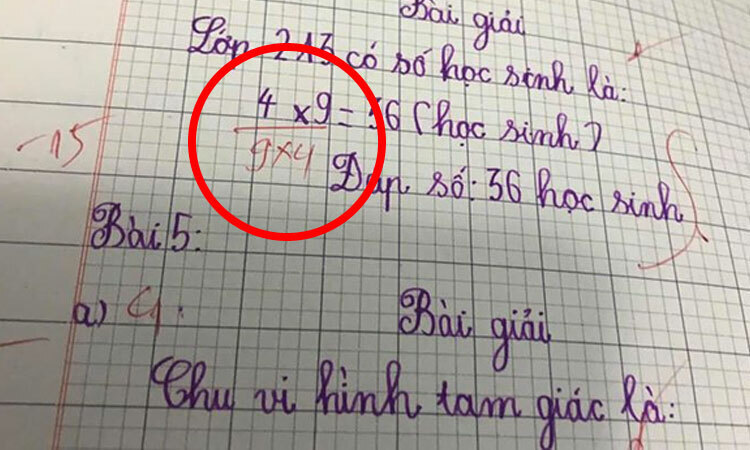 Bài giải
Lớp 2A5 có số học sinh là:
4 x 9 = 36 (học sinh)
9x4
-15
Đáp số: 36 học sinh
Bài 5:
a) 4.
Bài giải
Chu vi hình tam giác là: